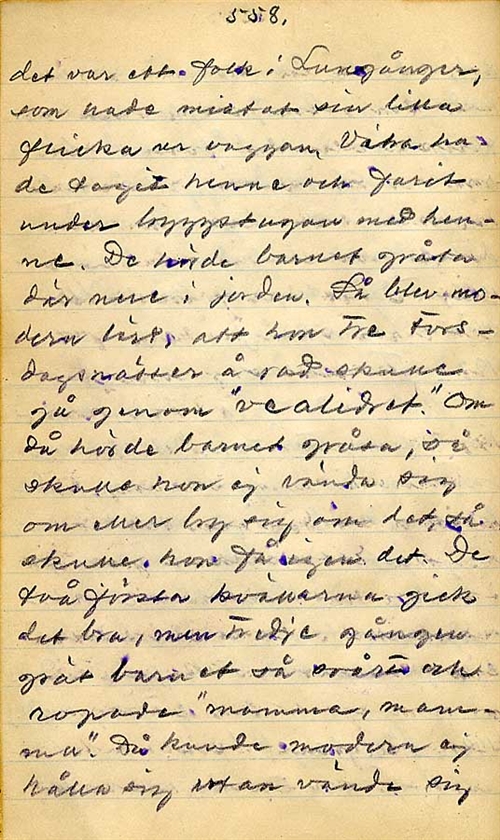 558.
det var ett folk i Lungånger,
som hade mistat sin lilla
flicka ur vaggan. Vitra ha-
de tagit henne och farit
under byggstugan med hen-
ne. De hörde barnet gråta
där nere i jorden. Så blev mo-
dern lärd, att hon tre tors-
dagsnätter å rad skulle
gå genom "vealidret." Om
då hörde barnet gråta, så
skulle hon ej vända sig
om eller bry sig om det, så
skulle hon få igen det. De
två första kvällarna gick
det bra, men tredje gången
grät barnet så svårt och
ropade "mamma, mam-
ma". Då kunde modern ej
hålla sig utan vände sig